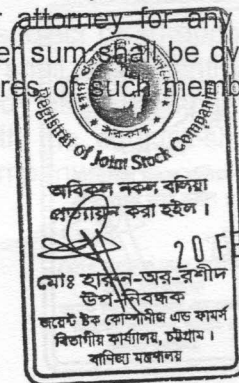 attorney for any
er sum shall be ov
res on such memb
Registrar of Joint Stock Compan
অবিকল নকল বলিয়া
প্রত্যায়ন করা হইল।
20 FE
মোঃ হারুন-অর-রশীদ
উপ-নিবন্ধক
জয়েন্ট ষ্টক কোম্পানীজ এন্ড ফার্মস
বিভাগীয় কার্যালয়, চট্টগ্রাম।
বাণিজ্য মন্ত্রণালয়